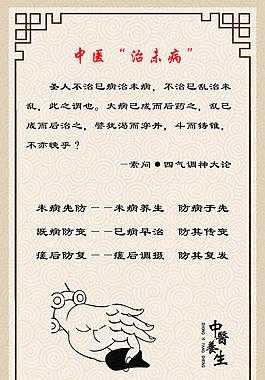 中医“治未病”
圣人不治已病治未病，不治已乱治未
乱，此之谓也。夫病已成而后药之，乱已
成而后治之，譬犹渴而穿井，斗而铸锥，
不亦晚乎？
—素问●四气调神大论
未病先防——未病养生 防病于先
既病防变——已病早治 防其传变
瘥后防复——瘥后调摄 防其复发
中醫養生
ZHONG YI YANG SHENG